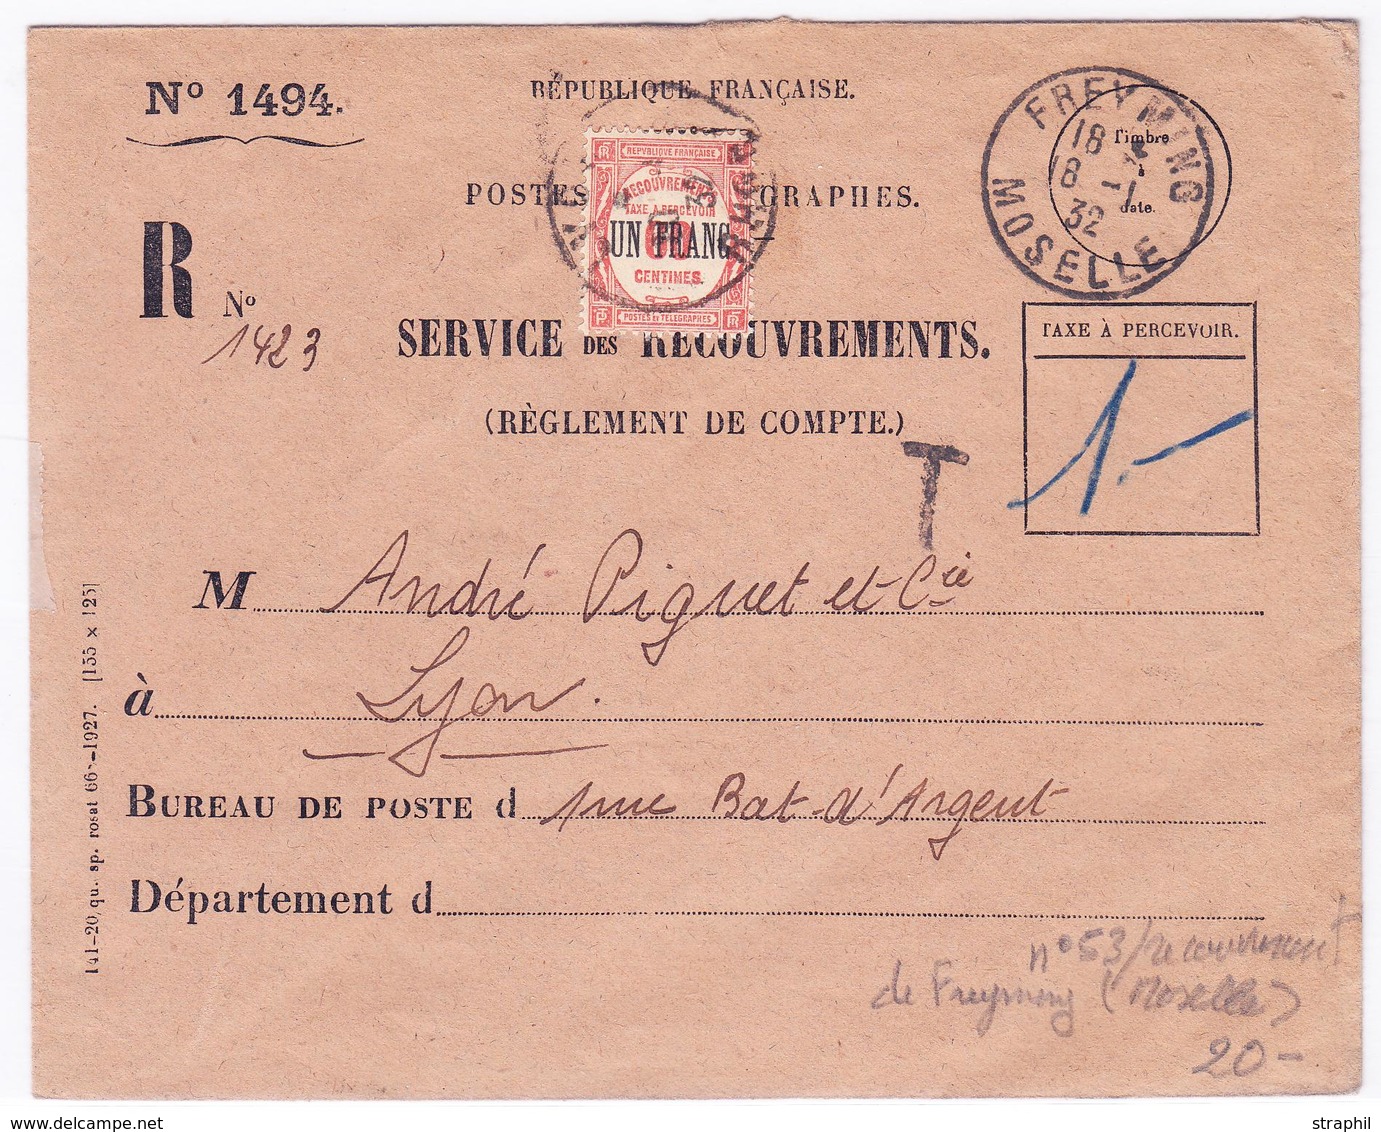 N° 1494.
RÉPUBLIQUE FRANÇAISE.
FREYMING
18
18 1
32
MOSELLE
Timbre
à
date.
REPUBLIQUE FRANÇAISE
RECOUVREMENTS
TAXE A PERCEVOIR
UN FRANC
60
CENTIMES
POSTES ET TELEGRAPHES
POSTES GRAPHES.
R N°
1423
SERVICE DES RECOUVREMENTS.
(RÈGLEMENT DE COMPTE.)
TAXE À PERCEVOIR.
1.-
T
M André Piguet et Cie
à Lyon.
BUREAU DE POSTE d 1 rue Bat-d'Argent
Département d
141-20, qu. sp. rosat 66 -1927. [155 x 125]
n° 53/recouvrement
de Freyming (Moselle)
20 -
straphil